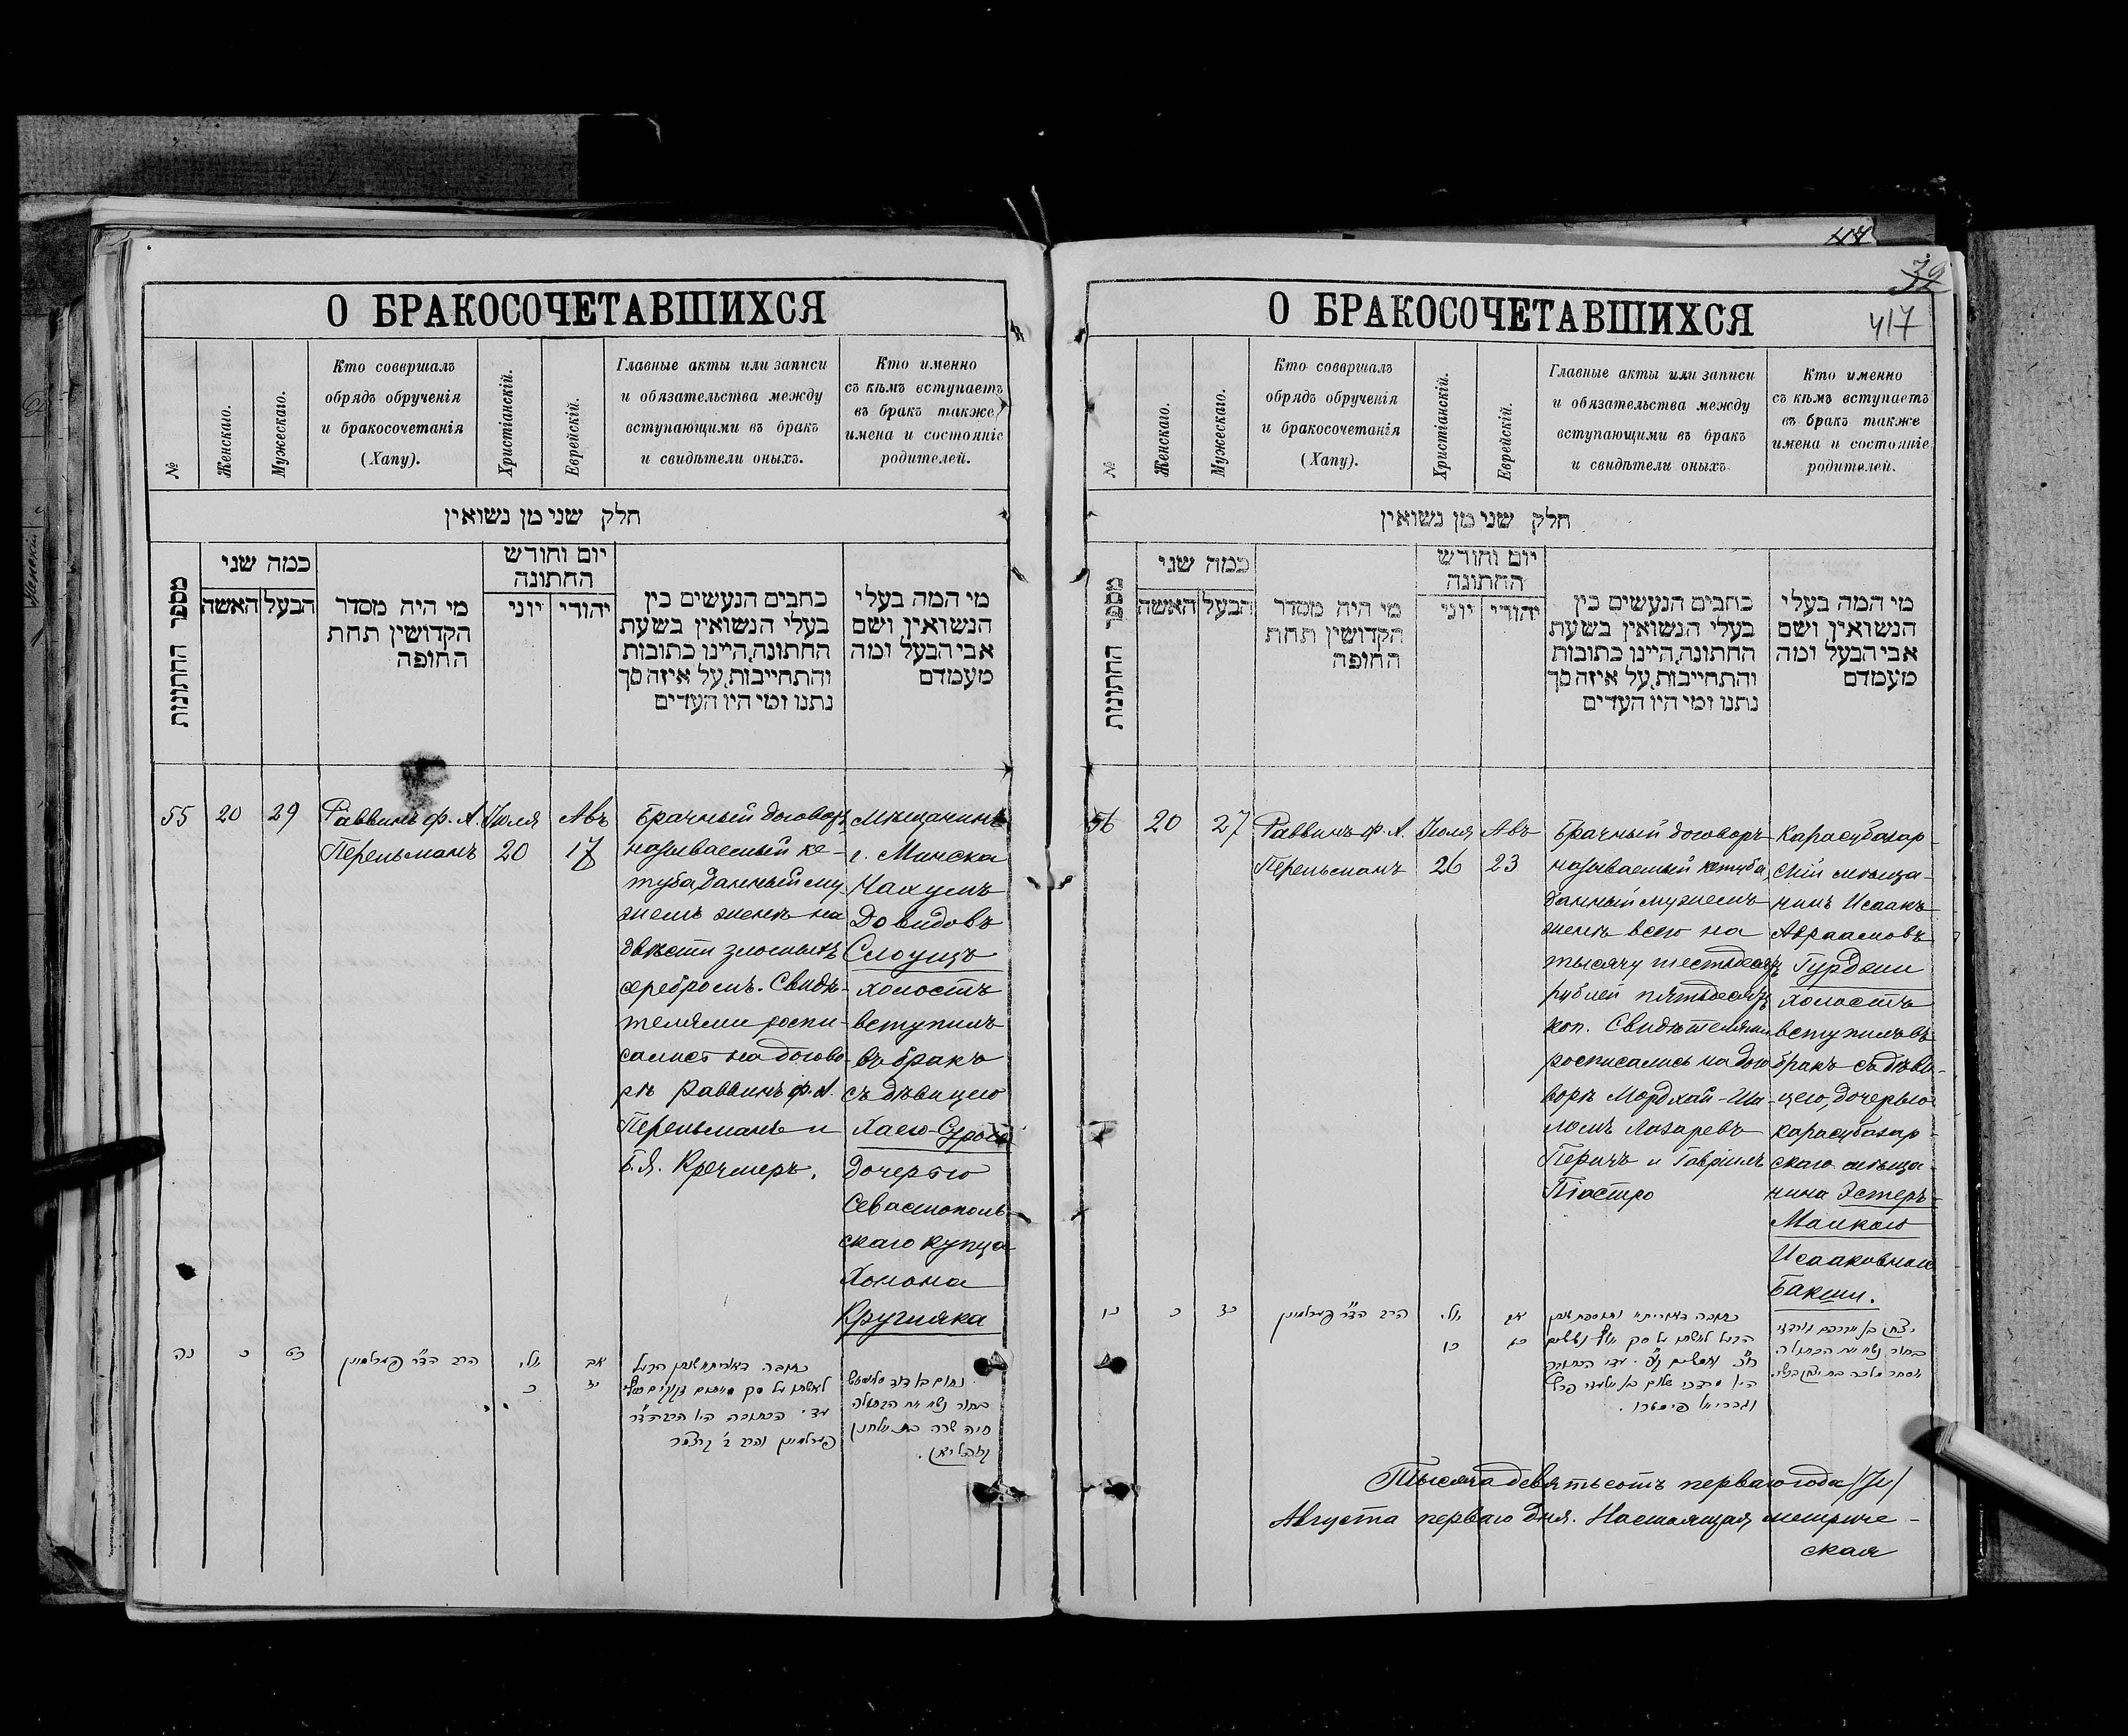 47
О БРАКОСОЧЕТАВШИХСЯ
№
Женскаго.
Мужескаго.
Кто совершалъ
обрядъ обрученія
и бракосочетанія
(Хапу).
Христіанскій.
Еврейскій.
Главные акты или записи
и обязательства между
вступающими въ бракъ
и свидѣтели оныхъ.
Кто именно
съ кѣмъ вступаетъ
въ бракъ также
имена и состояніе
родителей.
חלק שני מן נשואין
מספר החתונות
כמה שני
האשה
הבעל
מי היה מסדר
הקדושין תחת
החופה
יום וחודש
החתונה
יוני
יהודי
כתבים הנעשים בין
בעלי הנשואין בשעת
החתונה,היינו כתובות
והתחייבות,על איזה סך
נתנו ומי היו העדים
מי המה בעלי
הנשואין ושם
אבי הבעל ומה
מעמדם
55
20
29
Раввинъ ф. А.
Перельманъ
Іюля
20
Авъ
17
Брачный договоръ
называемый ке-
туба, данный му-
жемъ женѣ на
двѣсти злотыхъ
серебромъ. Свидѣ-
телями роспи-
сались на догово-
рѣ Раввинъ ф. А.
Перельманъ и
Б. Я. Кречмеръ.
Мѣщанинъ
г. Минска
Нахумъ
Довидовъ
Слоущъ
холостъ
вступилъ
въ бракъ
съ дѣвицею
Хаею-Сурою
дочерью
Севастополь-
скаго купца
Хонона
Кругляка
נה
כ
כט
הרב הד״ר פערלמאן
יולי
כ
אב
יז
О БРАКОСОЧЕТАВШИХСЯ
39
417
№
Женскаго.
Мужескаго.
Кто совершалъ
обрядъ обрученія
и бракосочетанія
(Хапу).
Христіанскій.
Еврейскій.
Главные акты или записи
и обязательства между
вступающими въ бракъ
и свидѣтели оныхъ.
Кто именно
съ кѣмъ вступаетъ
въ бракъ также
имена и состояніе
родителей.
חלק שני מן נשואין
מספר החתונות
כמה שני
האשה
הבעל
מי היה מסדר
הקדושין תחת
החופה
יום וחודש
החתונה
יוני
יהודי
כתבים הנעשים בין
בעלי הנשואין בשעת
החתונה,היינו כתובות
והתחייבות,על איזה סך
נתנו ומי היו העדים
מי המה בעלי
הנשואין ושם
אבי הבעל ומה
מעמדם
56
20
27
Раввинъ ф. А.
Перельманъ
Іюля
26
Авъ
23
Брачный договоръ
называемый кетуба,
данный мужемъ
женѣ всего на
тысячу шестьдесятъ
рублей пятьдесятъ
коп. Свидѣтелями
росписались на дого-
ворѣ Мордхай-Ша-
ломъ Лазаревъ
Перичъ и Гавріилъ
Піастро
Карасубазар-
скій мѣща-
нинъ Исаакъ
Авраамовъ
Гурджи
холостъ
вступилъ въ
бракъ съ дѣви-
цею, дочерью
карасубазар-
скаго мѣща-
нина Эстеръ-
Малкою
Исааковною
Бакши.
נו
כ
כז
הרב הד״ר פערלמאן
יולי
כו
אב
כג
Тысяча девятьсотъ перваго года
Августа перваго дня. Настоящая метриче-
ская